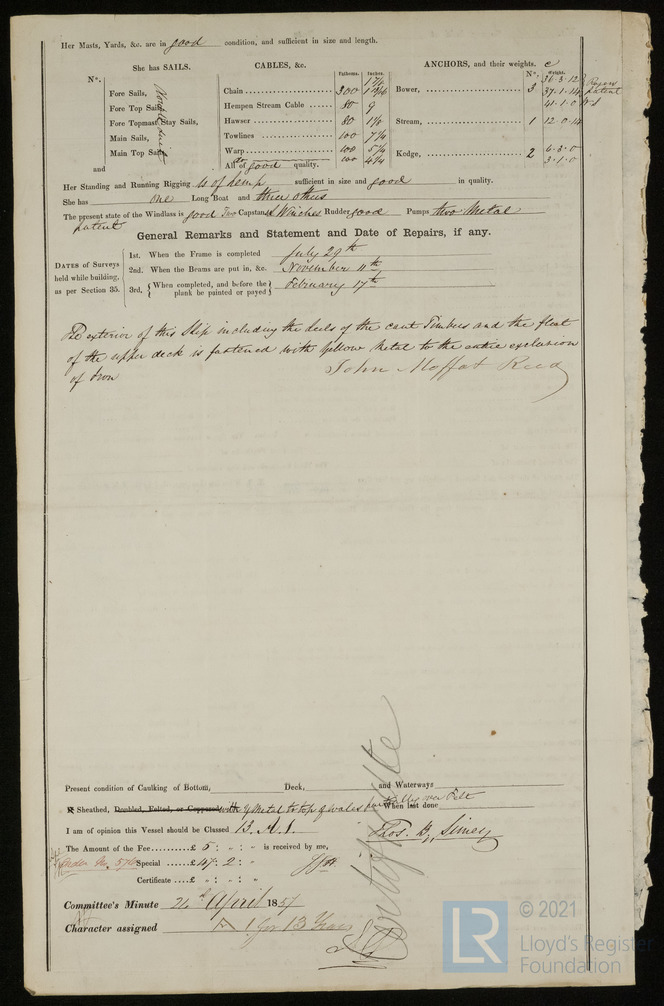 Her Masts, Yards, &c. are in good condition, and sufficient in size and length.
She has SAILS. CABLES, &c. ANCHORS, and their weights.
Nº. Fathoms. Inches. Nº. Weight.
Fore Sails, Chain 300 Bower, 3 36-3-12
Fore Top Sails, Hempen Stream Cable 80 9 37-1-14 patent
Fore Topmast Stay Sails, Hawser 80 41-1-0
Main Sails, Towlines 100 7½ Stream, 1 12-0-14
Main Top Sails, Warp 100 5½ Kedge, 2 6-3-0
and All of good quality. 100 4½ 3-1-0
Her Standing and Running Rigging is of hemp sufficient in size and good in quality.
She has one Long Boat and three others
The present state of the Windlass is good Two Capstan & Winches Rudder good Pumps two Metal
patent
General Remarks and Statement and Date of Repairs, if any.
DATES of Surveys held while building, as per Section 35.
1st. When the Frame is completed July 29th
2nd. When the Beams are put in, &c. November 11th
3rd. { When completed, and before the plank be painted or payed } February 17th
The exterior of this Ship including the heels of the cant Timbers and the float
of the upper deck is fastened with Yellow Metal to the entire exclusion
of Iron John Moffat Reed
Present condition of Caulking of Bottom, Deck, and Waterways
Sheathed, Doubled, Felted, or Coppered with Y Metal to top of wales over Felt When last done
I am of opinion this Vessel should be Classed 13. A. 1.
Thos. B. Simey
The Amount of the Fee £ 5 : „ : „ is received by me,
Special £ 47 : 2 : „
Certificate £ „ : „ : „
Certificate
Committee's Minute 24th April 1857
Character assigned A 1 for 13 Years
© 2021
LR
Lloyd's Register
Foundation